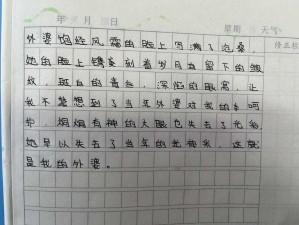 年 月 日 星期 天气
外婆饱经风霜的脸上写满了沧桑，
她的脸上镌刻着岁月血留下的皱
纹，斑白的青丝，深陷的眼窝，让
我不禁想到了当年外婆对我的呵
护，炯炯有神的大眼也失去了光彩
她早以失去了当年的光彩，这就
是我的外婆。